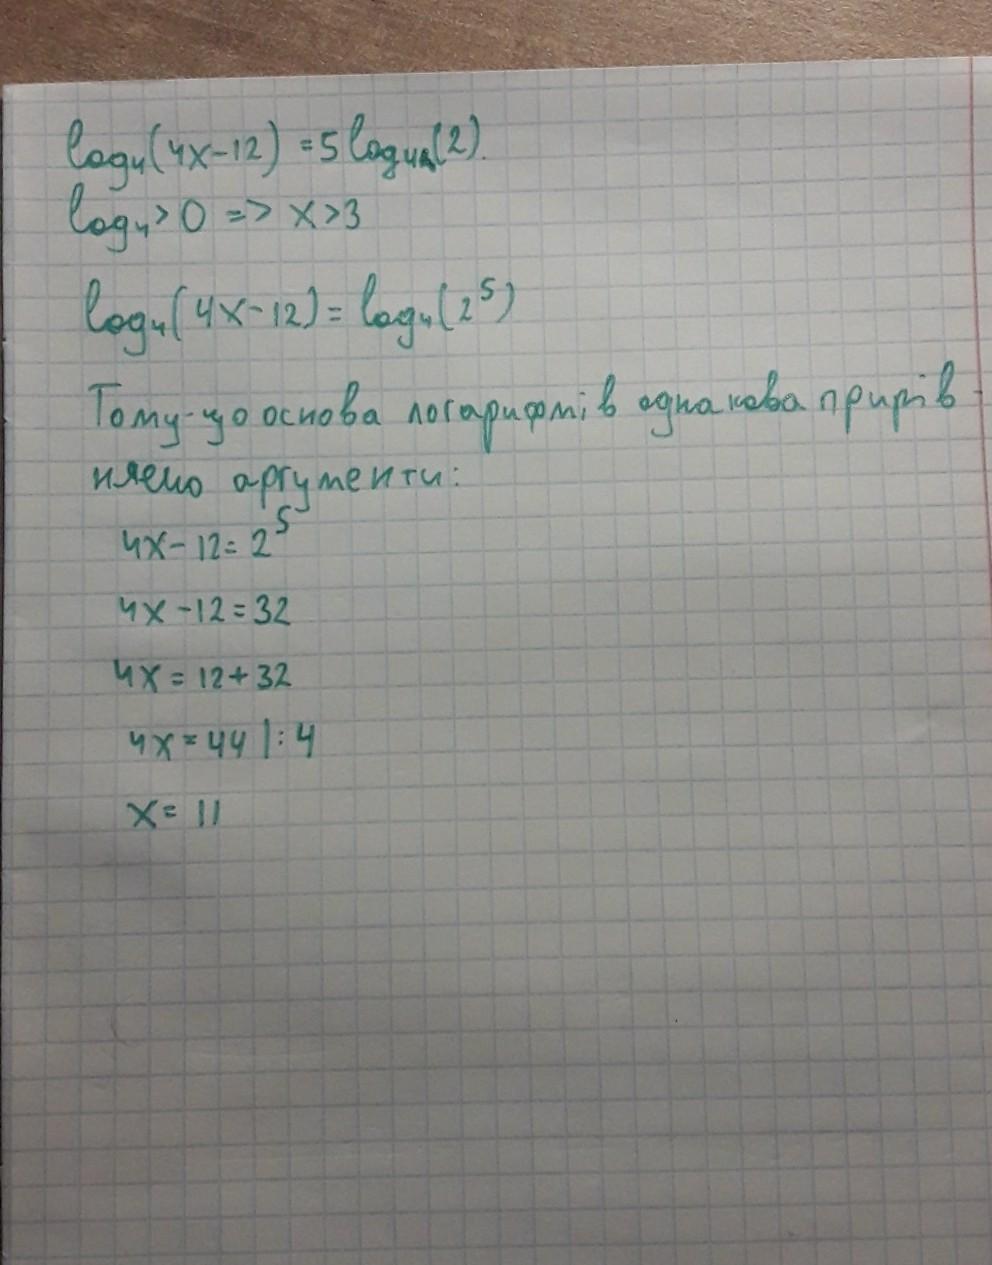 log₄(4x-12) = 5 log₄(2)
log₄>0 => x>3
log₄(4x-12) = log₄(2⁵)
Тому-що основа логарифмів однакова прирів-
няємо аргументи:
4x-12=2⁵
4x-12=32
4x=12+32
4x=44 |:4
x=11